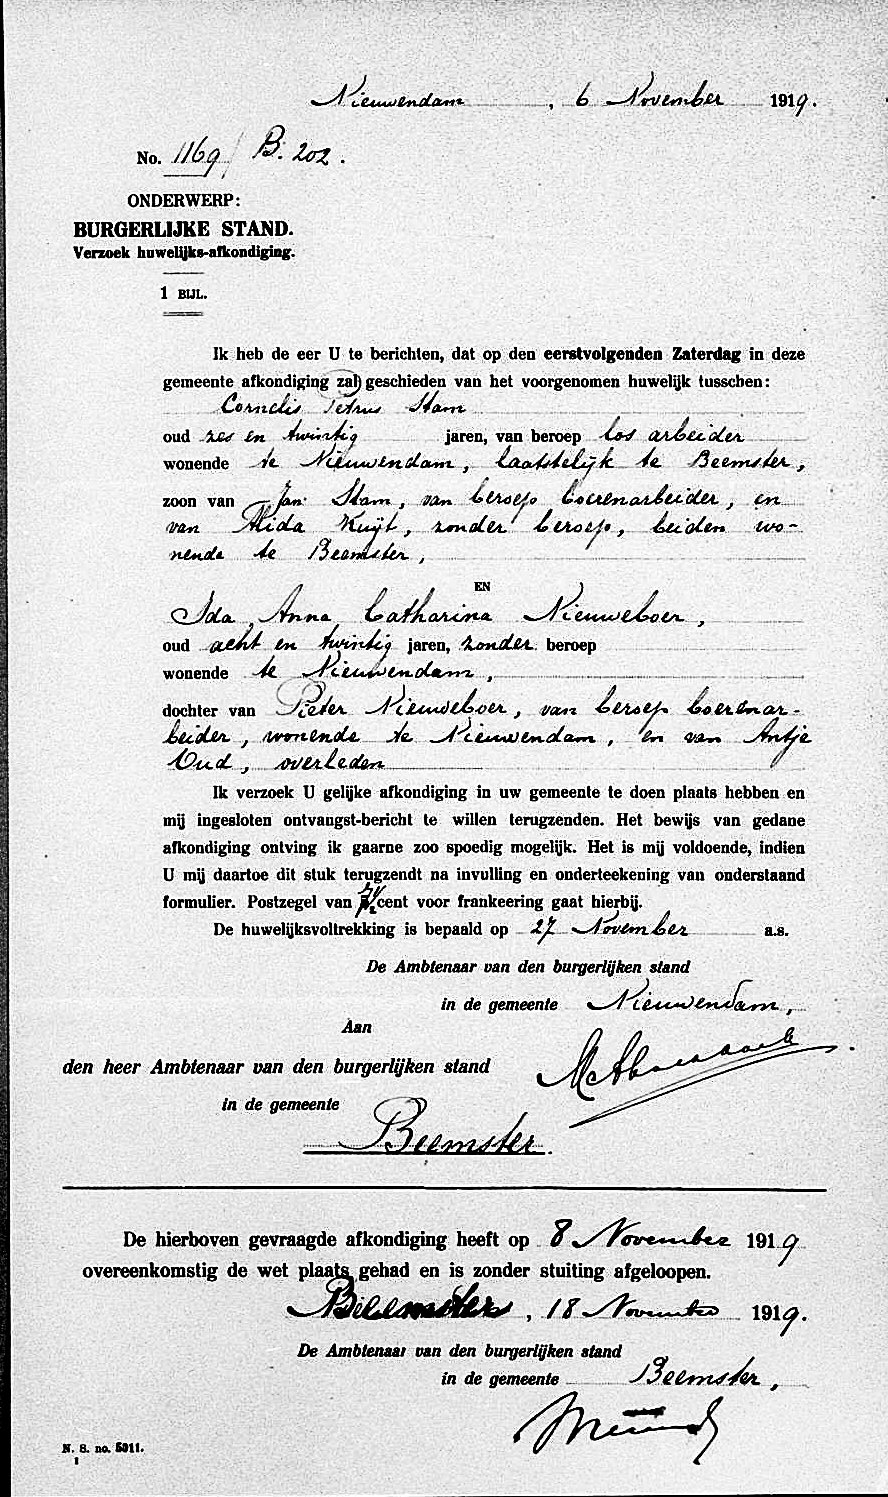 Nieuwendam, 6 November 1919.
No. 1169/ B. 202.
ONDERWERP:
BURGERLIJKE STAND.
Verzoek huwelijks-afkondiging.
1 BIJL.
Ik heb de eer U te berichten, dat op den eerstvolgenden Zaterdag in deze
gemeente afkondiging zal geschieden van het voorgenomen huwelijk tusschen:
Cornelis Petrus Stam
oud zes en twintig jaren, van beroep los arbeider
wonende te Nieuwendam, laatstelijk te Beemster,
zoon van Jan Stam, van beroep boerenarbeider, en
van Alida Kuijt, zonder beroep, beiden wo-
nende te Beemster,
EN
Ida Anna Catharina Nieuweboer,
oud acht en twintig jaren, zonder beroep
wonende te Nieuwendam,
dochter van Pieter Nieuweboer, van beroep boerenar-
beider, wonende te Nieuwendam, en van Antje
Oud, overleden
Ik verzoek U gelijke afkondiging in uw gemeente te doen plaats hebben en
mij ingesloten ontvangst-bericht te willen terugzenden. Het bewijs van gedane
afkondiging ontving ik gaarne zoo spoedig mogelijk. Het is mij voldoende, indien
U mij daartoe dit stuk terugzendt na invulling en onderteekening van onderstaand
formulier. Postzegel van cent voor frankeering gaat hierbij.
De huwelijksvoltrekking is bepaald op 27 November a.s.
De Ambtenaar van den burgerlijken stand
in de gemeente Nieuwendam,
Aan
den heer Ambtenaar van den burgerlijken stand
in de gemeente
Beemster.
De hierboven gevraagde afkondiging heeft op 8 November 1919
overeenkomstig de wet plaats gehad en is zonder stuiting afgeloopen.
Beemster, 18 November 1919.
De Ambtenaar van den burgerlijken stand
in de gemeente Beemster,
N. S. no. 5011.
1